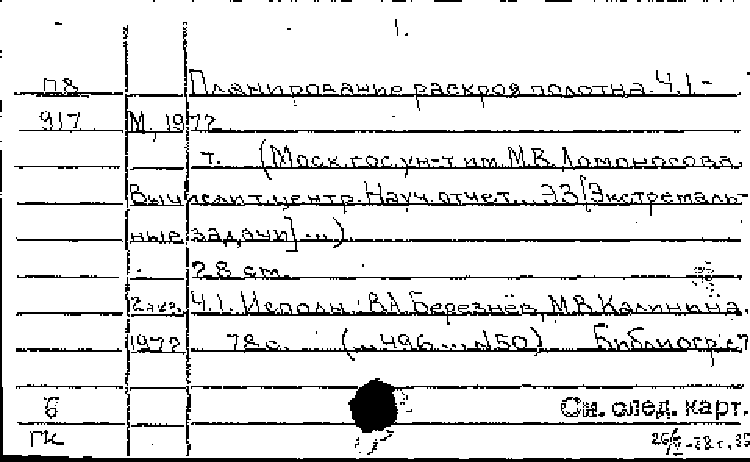 1.
П8 Планирование раскроя полотна. Ч.1-
917 М., 1972
т. (Моск. гос. ун-т им. М.В. Ломоносова.
Вычислит. центр. Науч. отчет... ЭЗ [Экстремаль-
ные задачи] ...).
28 см.
2 экз. Ч.1. Исполн.: В.А. Березнёв, М.В. Калинина.
1972 78 с. (...496... №50) Библиогр.: с
б См. след. карт.
ГК